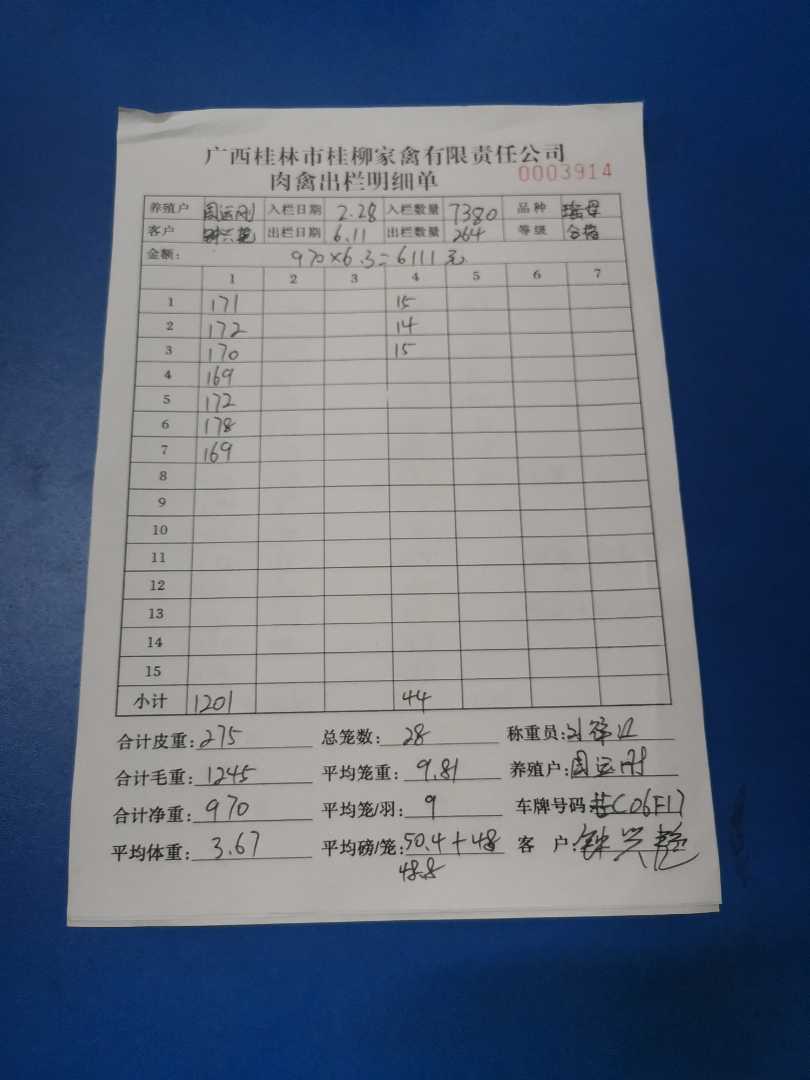 广西桂林市桂柳家禽有限责任公司
肉禽出栏明细单 0003914
养殖户 周运刚 入栏日期 2.28 入栏数量 7380 品种 瑶母
客户 钟兴艳 出栏日期 6.11 出栏数量 264 等级 合格
金额: 970×6.3=6111元
1 2 3 4 5 6 7
1 171 15
2 172 14
3 170 15
4 169
5 172
6 178
7 169
8
9
10
11
12
13
14
15
小计 1201 44
合计皮重: 275 总笼数: 28 称重员:
合计毛重: 1245 平均笼重: 9.81 养殖户: 周运刚
合计净重: 970 平均笼/羽: 9 车牌号码 C06F17
平均体重: 3.67 平均磅/笼: 50.4+48 客 户: 钟兴艳
48.8